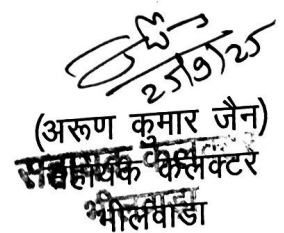 25/9/25
(अरूण कुमार जैन)
सहायक कलक्टर
भीलवाडा